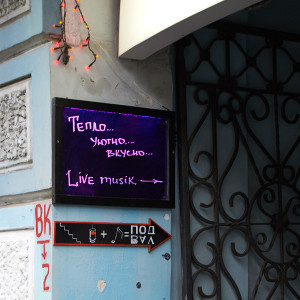 Тепло...
уютно...
вкусно...
Live musik →
+ = ПОД
ВАЛ
ВК
2